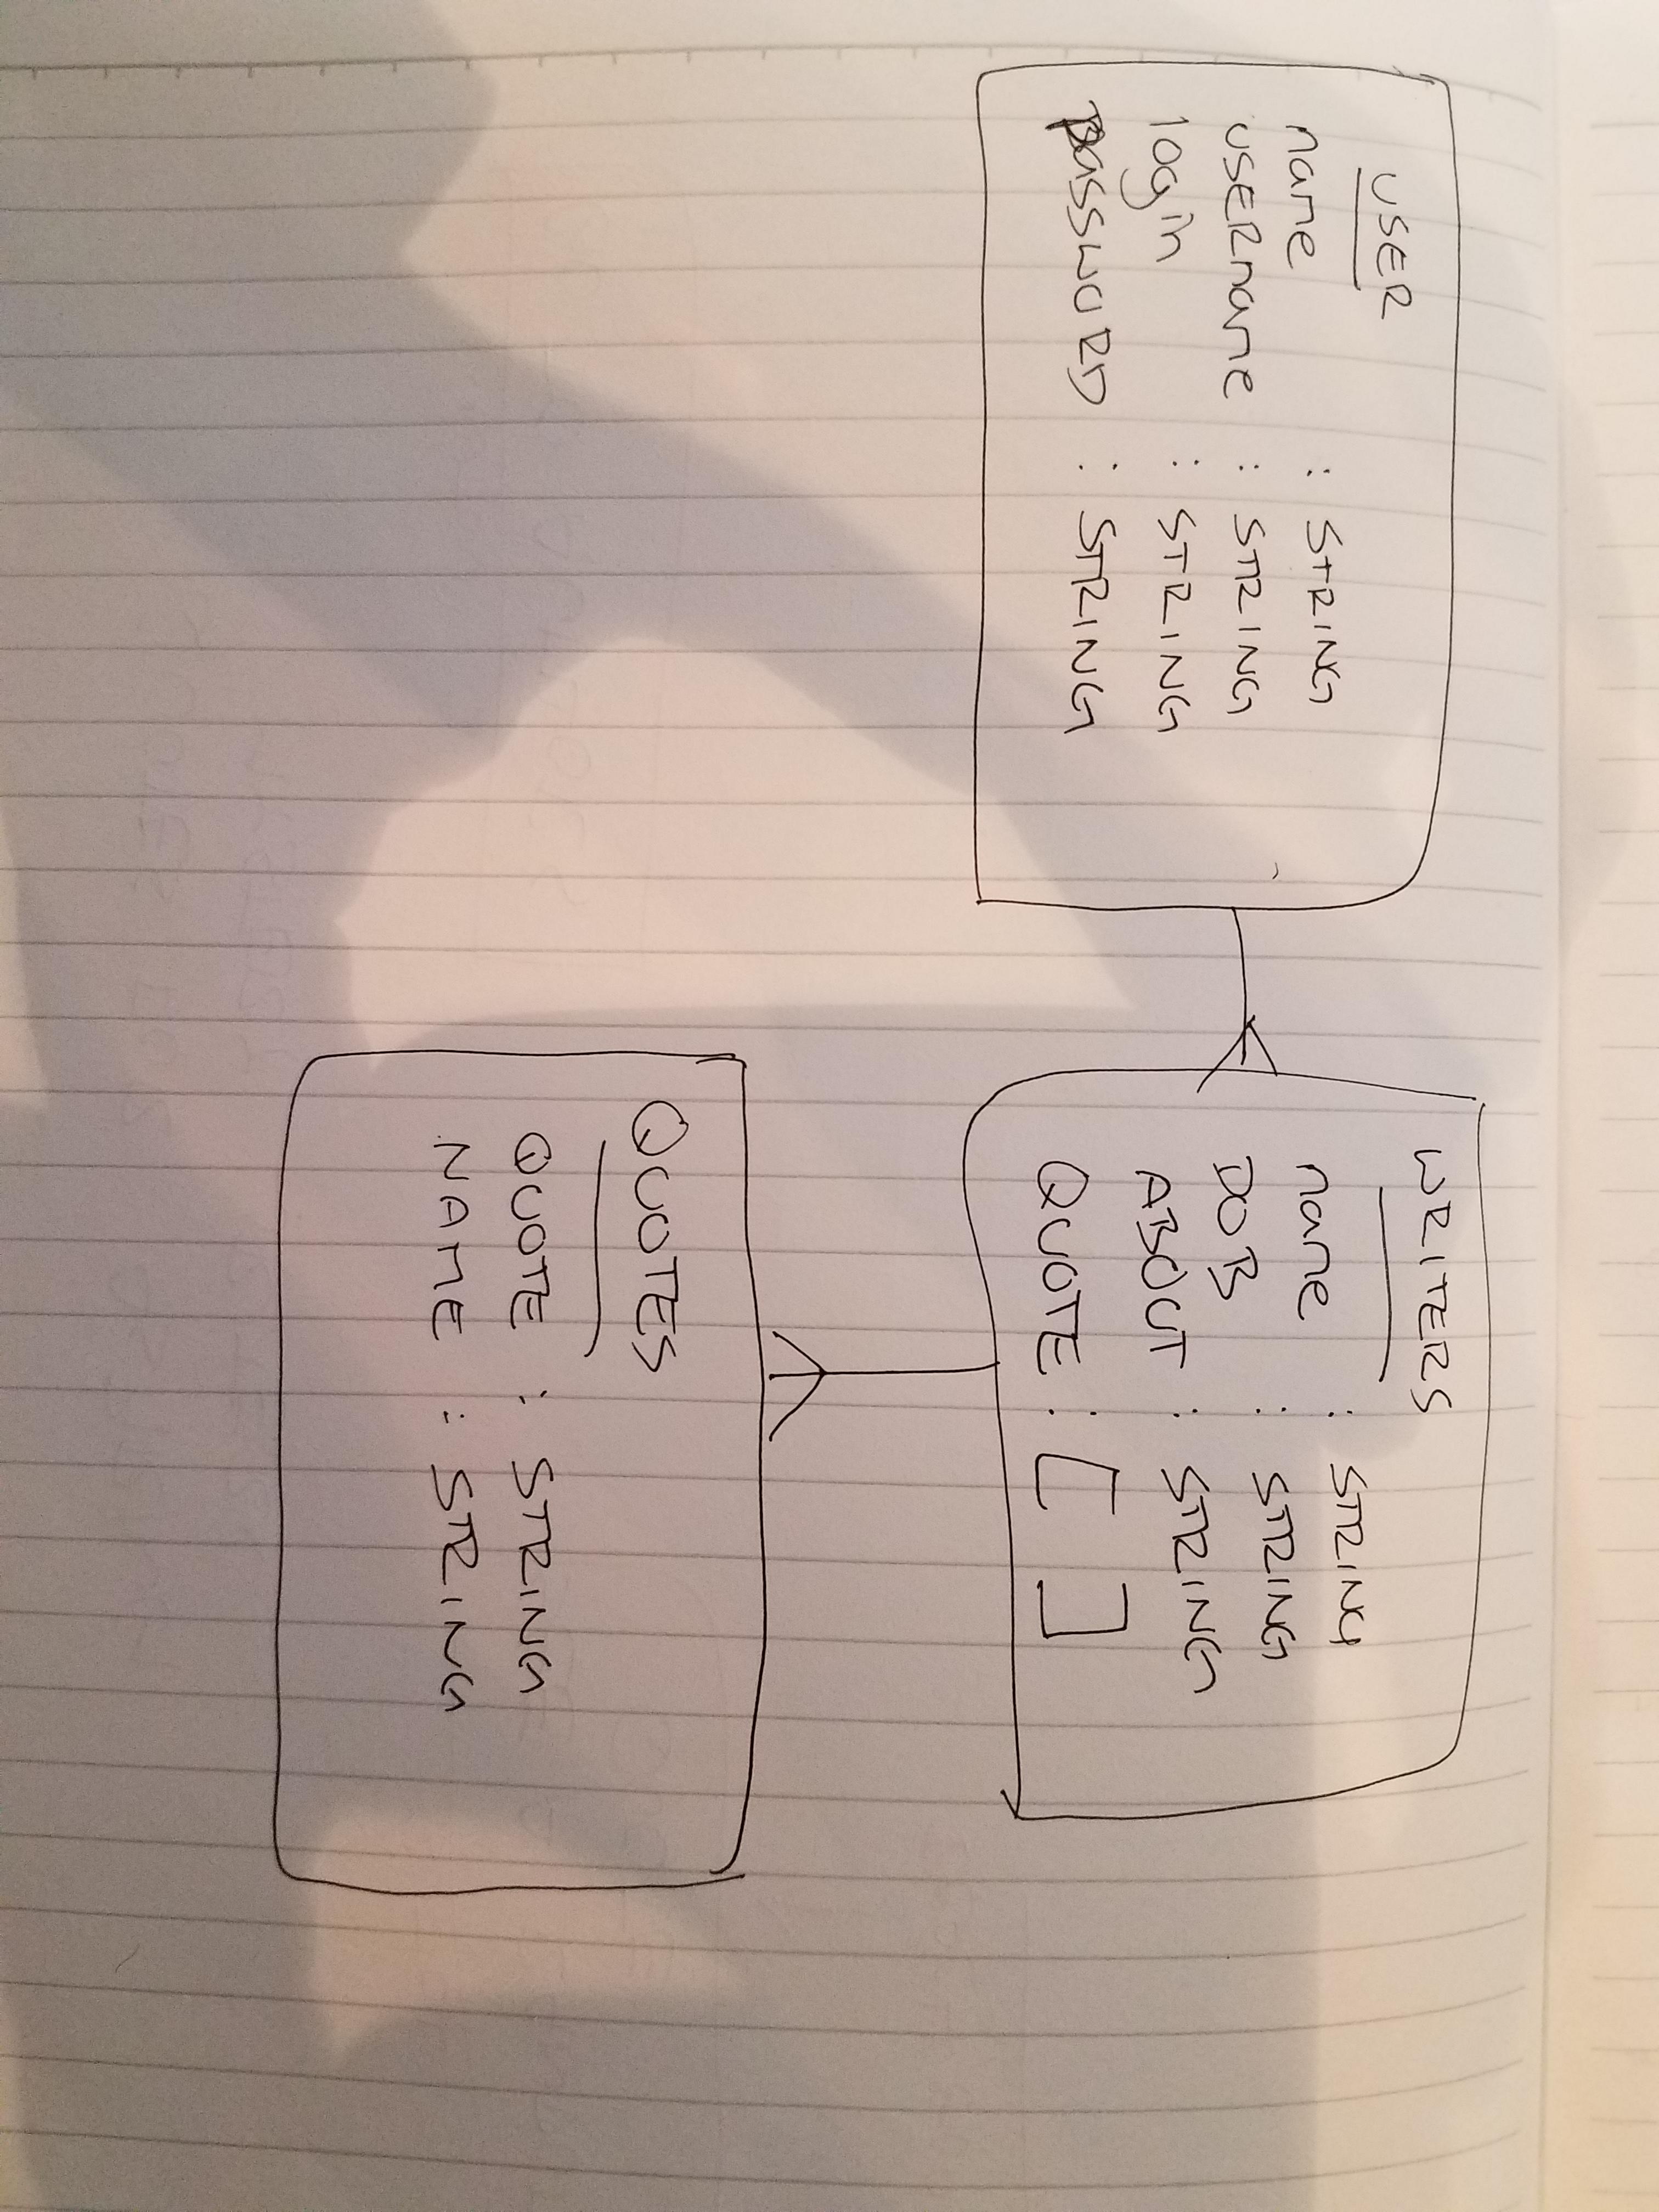 USER
name : STRING
USERname : STRING
login : STRING
PASSWORD : STRING
WRITERS
name : STRING
DOB : STRING
ABOUT : STRING
QUOTE : [ ]
QUOTES
QUOTE : STRING
NAME : STRING